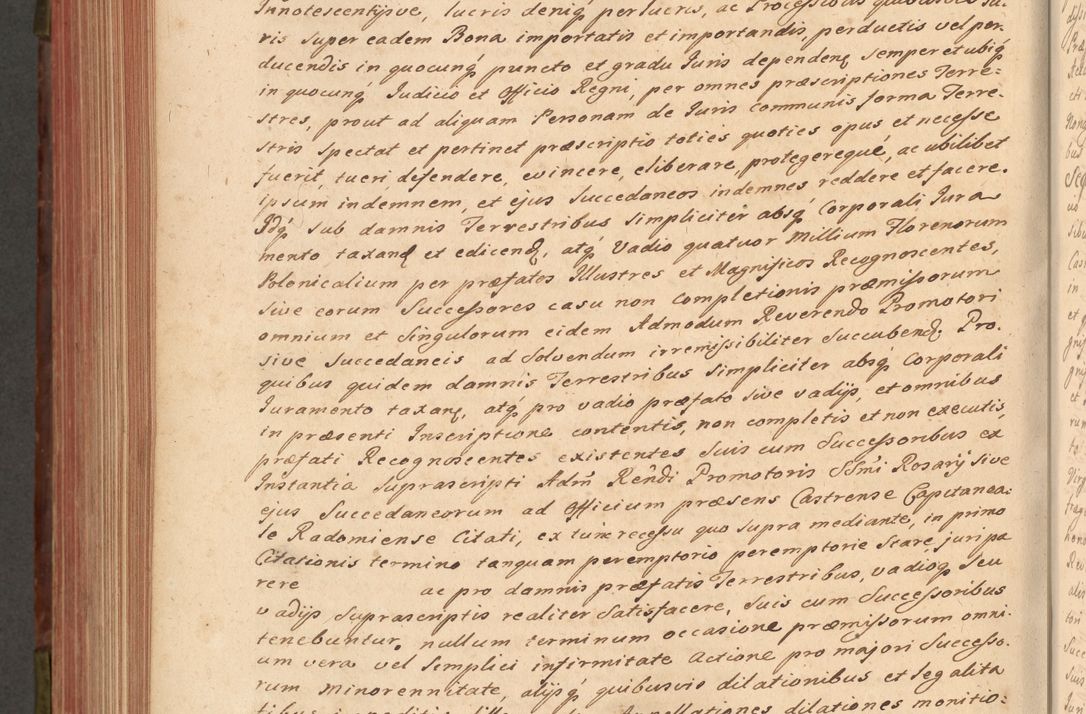 Innotescentijsve, lucris deniq́ perlucris, ac Processibus quibusvis Ju-
ris super eadem Bona importatis et importandis, perductis vel per-
ducendis in quocunq́ puncto et gradu Juris dependenꝗ semper et ubiq́
in quocunq́ Judicio et Officio Regni, per omnes præscriptiones Terre=
stres, prout ad aliquam Personam de Juris communis forma Terre-
stris spectat et pertinet præscriptio toties quoties opus et necesse
fuerit, tueri, defendere, evincere, eliberare, protegereque, ac ubilibet
ipsum indemnem, et ejus Succedaneos indemnes reddere et facere.
Idq́ sub damnis Terrestribus Simpliciter absq́ Corporali Jura
mento taxanꝗ et edicenꝗ, atq́ vadio quatuor Millium Florenorum
Polonicalium per præfatos Illustres et Magnificos Recognoscentes,
sive eorum Successores casu non completionis præmissorum
omnium et Singulorum eidem Admodum Reverendo Promotori
sive Succedaneis ad Solvendum irremissibiliter Succubenꝗ. Pro-
quibus quidem damnis Terrestribus Simpliciter absq́ Corporali
Juramento taxanꝗ, atq́ pro vadio præfato sive vadijs, et omnibus
in præsenti Inscriptione contentis, non completis et non executis,
præfati Recognoscentes existentes Suis cum Successoribus ex
Instantia Suprascripti Adm̃ Rendi Promotoris SSm̃i Rosarij sive
ejus Succedaneorum ad Officium præsens Castrense Capitanea-
le Radomiense Citati, ex tunc recessu quo supra mediante, in primo
Citationis termino tanquam peremptorio peremptorie Stare, juri pa
rere ac pro damnis præfatis Terrestribus, vadioq́ Seu
vadijs Suprascriptis realiter Satisfacere, Suis cum Successoribus
tenebuntur, nullum terminum occasione præmissorum omni
um vera vel Simplici infirmitate Actione pro majori Successo-
rum minorennitate, alijsq́ quibusvis dilationibus et legalita
Appellationes dilationes monitio-